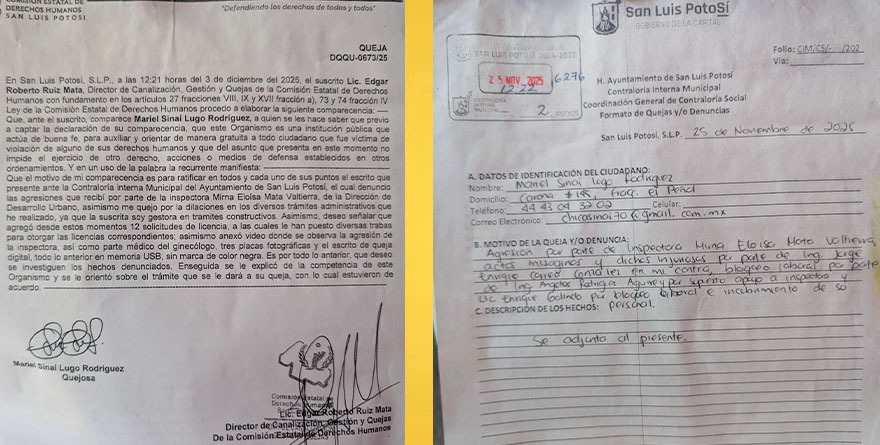 COMISIÓN ESTATAL DE
DERECHOS HUMANOS
SAN LUIS POTOSÍ
"Defendiendo los derechos de todos y todos"
QUEJA
DQQU-0673/25
En San Luis Potosí, S.L.P., a las 12:21 horas del 3 de diciembre del 2025, el suscrito Lic. Edgar
Roberto Ruiz Mata, Director de Canalización, Gestión y Quejas de la Comisión Estatal de Derechos
Humanos con fundamento en los artículos 27 fracciones VIII, IX y XVII fracción a), 73 y 74 fracción IV
Ley de la Comisión Estatal de Derechos Humanos procedo a elaborar la siguiente comparecencia: ----
Que, ante el suscrito, comparece Mariel Sinai Lugo Rodríguez, a quien se les hace saber que previo
a captar la declaración de su comparecencia, que este Organismo es una institución pública que
actúa de buena fe, para auxiliar y orientar de manera gratuita a todo ciudadano que fue víctima de
violación de alguno de sus derechos humanos y que del asunto que presenta en este momento no
impide el ejercicio de otro derecho, acciones o medios de defensa establecidos en otros
ordenamientos. Y en un uso de la palabra la recurrente manifiesta:
Que el motivo de mi comparecencia es para ratificar en todos y cada uno de sus puntos el escrito que
presente ante la Contraloría interna Municipal del Ayuntamiento de San Luis Potosí, el cual denuncio
las agresiones que recibí por parte de la inspectora Mirna Eloísa Mata Valtierra, de la Dirección de
Desarrollo Urbano, asimismo me quejo por dilaciones en los diversos trámites administrativos que
he realizado, ya que la suscrita soy gestora en tramites constructivos. Asimismo, deseo señalar que
agregó desde estos momentos 12 solicitudes de licencia, a las cuales le han puesto diversas trabas
para otorgar las licencias correspondientes; asimismo anexó video donde se observa la agresión de
la inspectora, así como parte médico del ginecólogo, tres placas fotográficas y el escrito de queja
digital, todo lo anterior en memoria USB, sin marca de color negra. Es por todo lo anterior, que deseo
se investiguen los hechos denunciados. Enseguida se le explicó de la competencia de este
Organismo y se le orientó sobre el trámite que se le dará a su queja, con lo cual estuvieron de
acuerdo.
Mariel Sinaí Lugo Rodríguez
Quejosa
Comisión Estatal de
Derechos Humanos
Lic. Edgar Roberto Ruiz Mata
Director de Canalización, Gestión y Quejas
De la Comisión Estatal de Derechos Humanos
San Luis PotoSÍ
GOBIERNO DE LA CAPITAL
SAN LUIS POTOSÍ 2024-2027
25 NOV 2025
12:22
6276
2 ANEXOS
Folio: CIM/CS/- /202
Vía:
H. Ayuntamiento de San Luis Potosí
Contraloría Interna Municipal
Coordinación General de Contraloría Social
Formato de Quejas y/o Denuncias
San Luis Potosí, S.L.P. 25 de Noviembre de 2025
A. DATOS DE IDENTIFICACIÓN DEL CIUDADANO:
Nombre: Mariel Sinai Lugo Rodriguez
Domicilio: Corona # 195, Fracc. el Peñol
Teléfono: 44 43 04 32 02 Celular:
Correo Electrónico: chicasinai30@gmail.com.mx
B. MOTIVO DE LA QUEJA Y/O DENUNCIA:
Agresión por parte de Inspectora Mirna Eloisa Mata Valtierra,
actos misoginos y dichos injuriosos por parte de Ing. Jorge
Enrique en mi contra, bloqueo laboral por parte
de Ing. Angeles Patricia por supuesto apoyo a inspectora y
Lic Enrique Galindo por bloqueo laboral e incubrimiento de su
C. DESCRIPCIÓN DE LOS HECHOS: personal.
Se adjunta al presente.